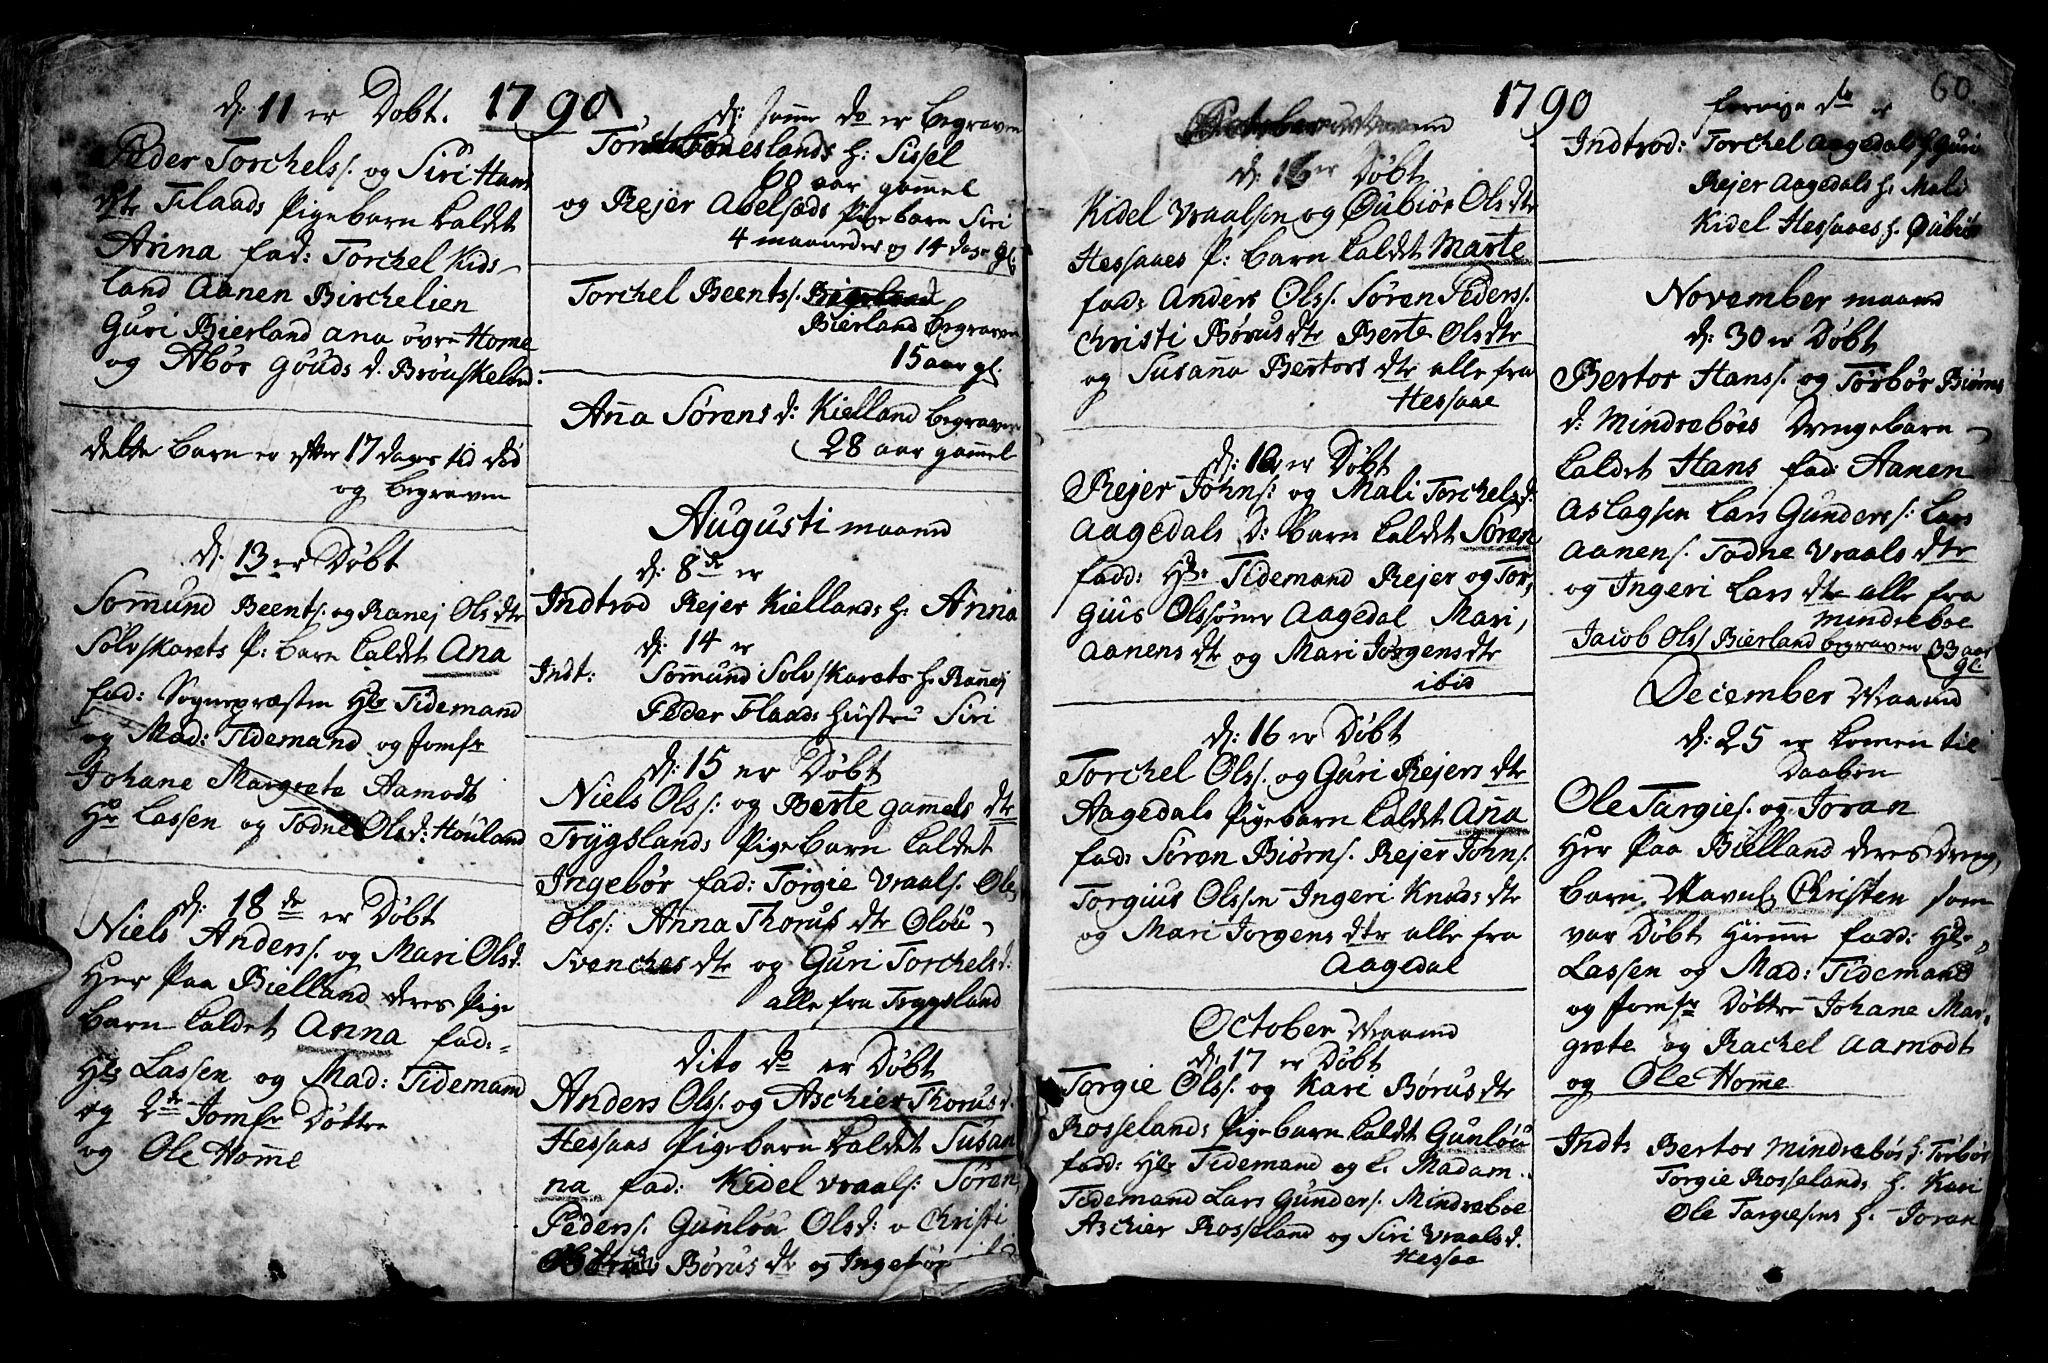 1790
d: 11 er Døbt.
Peder Torchels. og Siri Hans
dtr Flaads Pigebarn kaldet
Anna fad: Torchel Kids-
land Aanen Birchelien
Guri Bierland ana övre Home
og Abør Gouds d. Brouskeland.
dette barn er efter 17 dages tid død
og begraven
d: 13 er Døbt
Som̄und Beents. og Ranej Ols dtr
Sølvskarets P: barn kaldet Ana
fad: Sognepræsten Hr Tidemand
og Mad: Tidemand og Jomfr
Johane Margreta Aamodt
Hr Lassen og Todne Ols d: Houland
d: 18 de er Døbt
Niels Anders. og Mari Ols d.
Her Paa Bielland deres Pige
barn kaldet Anna fad:
Hr Lassen og Mad: Tidemand
og 2de Jomfr Døttre
og Ole Hom̄e
d: sam̄e do er begraven
Foneslands h: Sissel
60 aar gam̄el
og Rejer Abelsøds Pigebarn Siri
4 maaneder og 14 dage gl.
Torchel Beents. Bierland
Bierland begraven
15 aar gl.
An̄a Sørens d: Kielland begraven
28 aar gam̄el
Augusti maaned
d: 8 de er
Indtrod Rejer Kiellands h: Anna
d: 14 er
Indt: Som̄und Solvskarets h. Ran̄ej
Peder Flaads hustru Siri
d: 15 er Døbt
Niels Ols: og Berte gam̄els dtr
Trygslands Pigebarn kaldet
Ingebør fad: Torgie Vraals. Ole
Ols: Anna Thorus dtr Olou
Svenches dtr og Guri Torchels d:
alle fra Trygsland
Dito do er Døbt
Anders Ols. og Aschier Thorus d.
Hessaas Pigebarn kaldet Susan
na fad: Kidel Vraals: Søren
Peders. Gunlou Ols d: o Christi
Børus dtr og Ingebør
1790
60
d: 16 er Døbt
Kidel Vraalsen og Gubiør Ols dtr
Hessaaes P: barn kaldet Marte
fad: Anders Ols. Søren Peders.
Christi Børus dtr Berte Ols dtr
og Susan̄a Bertors dtr alle fra
Hessaae
d: 16 er Døbt
Rejer Johns: og Mali Torchels d:
Aagedals D: barn kaldet Søren
fadd: Hr Tidemand Rejer og Tor,
gius Olssøner Aagedal Mari,
Aanens dtr og Mari Jørgens dtr
ibid
d: 16 er Døbt
Torchel Ols. og Guri Rejers dtr
Aagedals Pigebarn kaldet An̄a
fad: Søren Biørns. Rejer Johns.
Torgius Olssen Ingeri Knuds dtr
og Mari Jorgens dtr alle fra
Aagedal
October Maaned
d: 17 er Døbt
Torgie Ols. og Kari Børus dtr
Rosselands Pigebarn kaldet Gunlou
fadd: Hr Tidemand og Madam
Tidemand Lars Gunders. Mindreboe
Aschier Rosseland og Siri Vraals d.
Hessaa
forrige dto er
Indtrod: Torchel Aagedals h. Guri
Rejer Aagedals h. Mali
Kidel Hessaaes h. Gubiør
November maaned
d: 30 er Døbt
Bertor Hans. og Torbør Biørns
d: Mindrebøes Drengebarn
kaldet Hans fad: Aanen
Aslagsen Lars Gunders: Lars
Aanens. Todne Vraals dtr
og Ingeri Lars dtr alle fra
Mindreboe
Jacob Ols Bierland begraven 33 aar
gl.
December Maaned
d: 25 er komen til
Daaben
Ole Targies. og Joran
Her Paa Bielland deres Dreng,
barn Navnl. Christen som
var Døbt Hiem̄e fadd: Hr
Lassen og Mad: Tidemand
og Jomfr Døttre Johane Mar,
grete og Rachel Aamodt
og Ole Hom̄e
Indt: Bertor Mindrebøs h. Torbør
Torgie Rosselands h. Kari
Ole Targiesens h. Joran